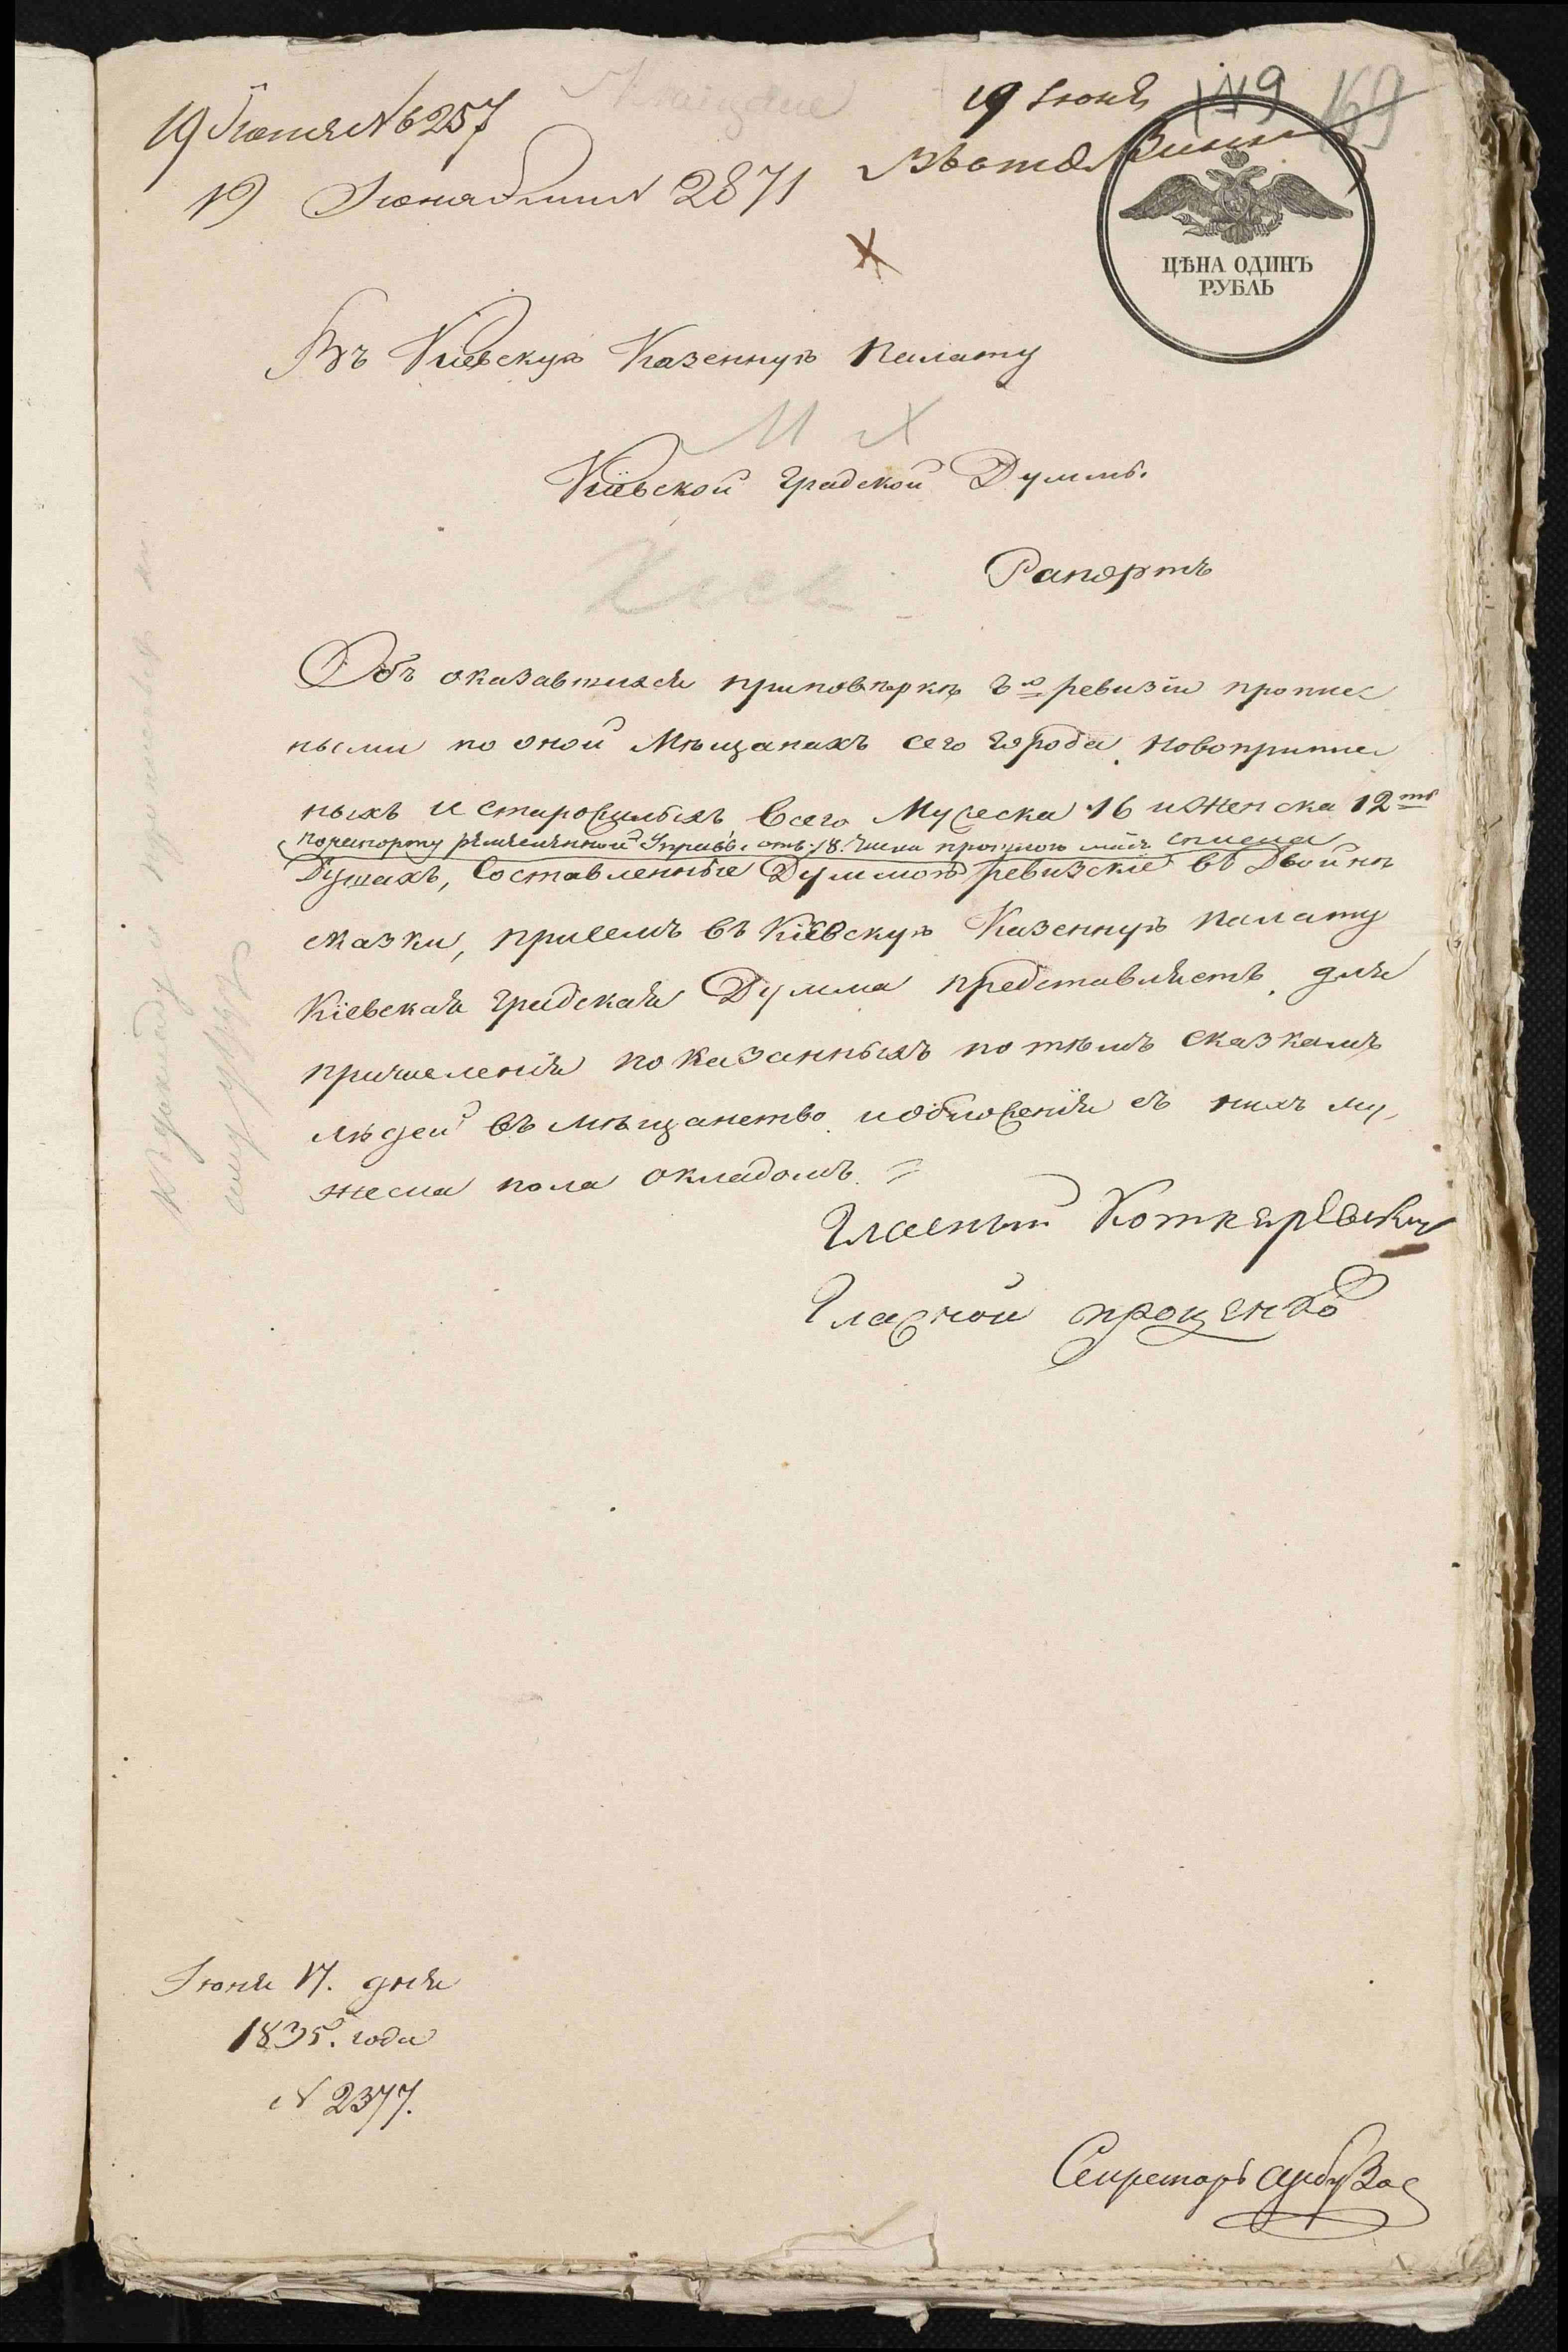 19 Июня № 6257
19 Июня 2871
19 Июня
149
169
ЦѢНА ОДИНЪ
РУБЛЬ
Въ Кіевскую Казенную Палату
Кіевской Градской Думмы.
Рапортъ
Объ оказавшихся приповѣркѣ 8й ревизіи пропис
ными по оной Мѣщанахъ сего города, новопритис
ныхъ и старожилыхъ всего Мужеска 16 и женска 12ть
по рапорту ремесленной Управы отъ 18. числа прошлого мая
Душахъ, Составленные Думмою ревизскіе въ Двойнѣ
сказки, присемъ въ Кіевскую Казенную Палату
Кіевская Градская Думма представляетъ, для
причисленія показанныхъ по тѣмъ сказкамъ
людей въ мѣщанство и обложенія съ нихъ му,
жеска пола окладомъ. =
Гласный
Гласной Проценко
Июня 17. дня
1835. года
№ 2377.
Секретарь